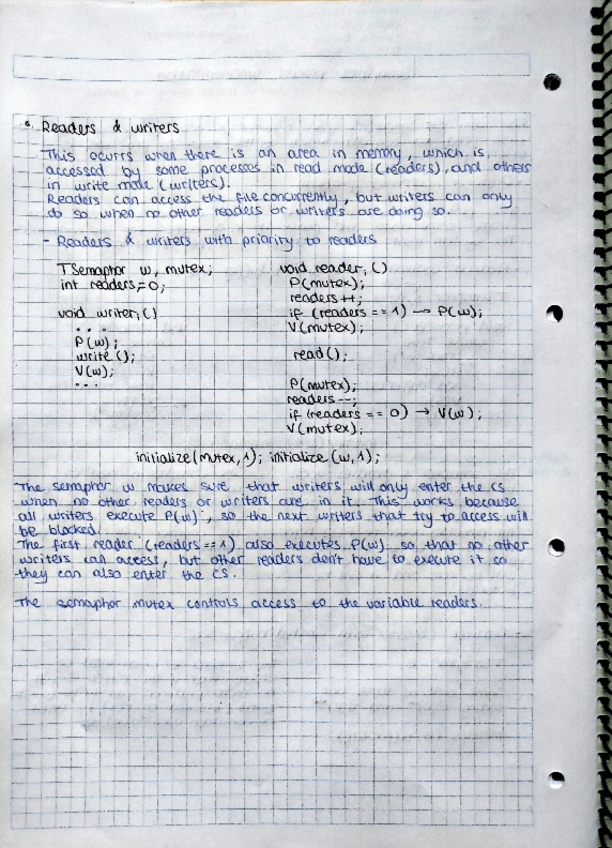 Readers & writers
This ocurrs when there is an area in memory, which is
accessed by some processes in read mode (readers), and others
in write mode (writers).
Readers can access the file concurrently, but writers can only
do so when no other readers or writers are doing so.
- Readers & writers with priority to readers
TSemaphor w, mutex;
int readers=0;
void writer_i()
...
P(w);
write();
V(w);
...
void reader_i()
P(mutex);
readers++;
if (readers == 1) → P(w);
V(mutex);
read();
P(mutex);
readers--;
if (readers == 0) → V(w);
V(mutex);
initialize(mutex,1); initialize(w,1);
The semaphor w makes sure that writers will only enter the CS
when no other readers or writers are in it. This works because
all writers execute P(w), so the next writers that try to access will
be blocked.
The first reader (readers==1) also executes P(w) so that no other
writers can access, but other readers don't have to execute it so
they can also enter the CS.
The semaphor mutex controls access to the variable readers.